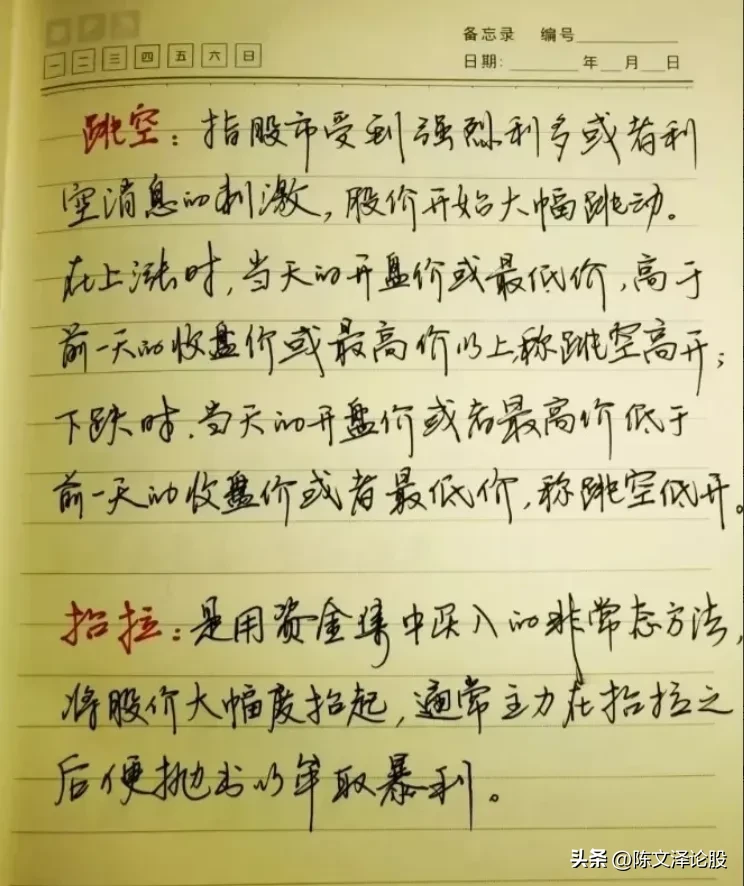 一 二 三 四 五 六 日
备忘录 编号
日期: 年 月 日
跳空：指股市受到强烈利多或者利
空消息的刺激，股价开始大幅跳动。
在上涨时，当天的开盘价或最低价，高于
前一天的收盘价或最高价以上，称跳空高开；
下跌时，当天的开盘价或者最高价低于
前一天的收盘价或者最低价，称跳空低开。
抬拉：是用资金集中买入的非常态方法，
将股价大幅度抬起，通常主力在抬拉之
后便抛出以牟取暴利。
头条 @陈文泽论股